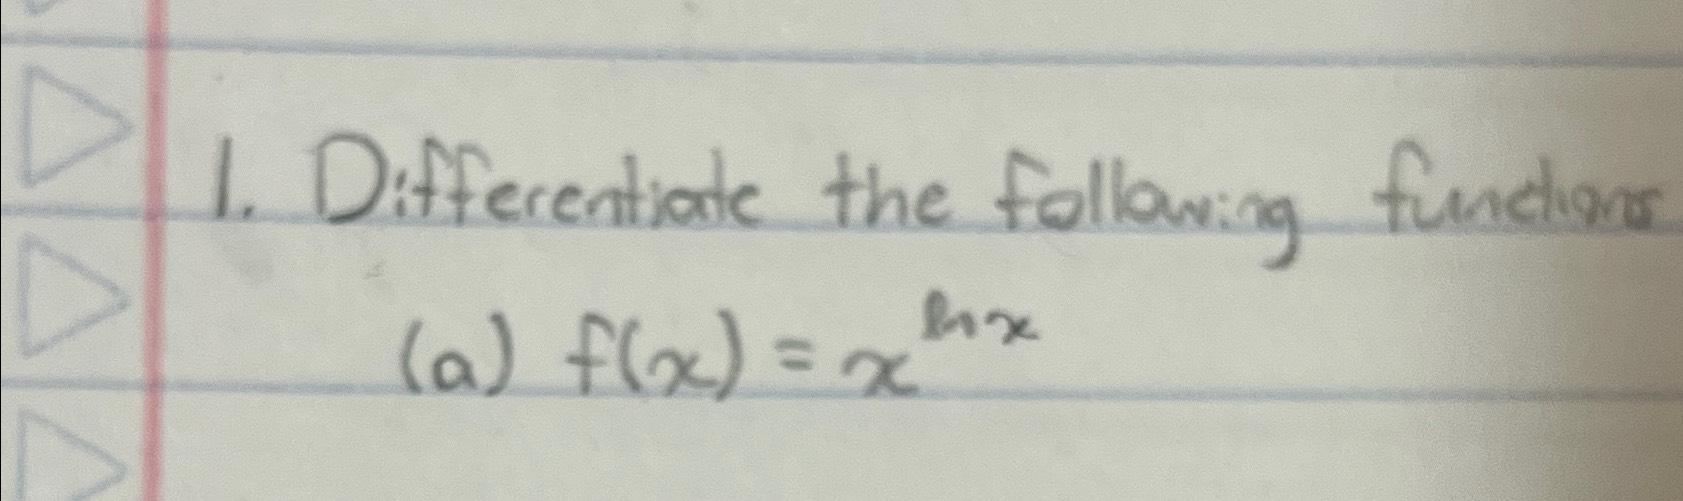 1. Differentiate the following functions
(a) f(x) = x^{ln x}